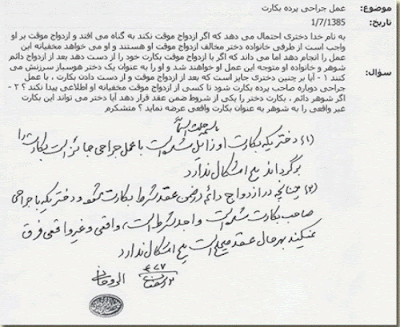 موضوع: عمل جراحی پرده بکارت
تاریخ: 1/7/1385
به نام خدا دختری احتمال می دهد که اگر ازدواج موقت نکند به گناه می افتد و ازدواج موقت بر او
واجب است از طرفی خانواده دختر مخالف ازدواج موقت او هستند و او می خواهد مخفیانه این
عمل را انجام دهد اما می داند که اگر با ازدواج موقت بکارت خود را از دست دهد بعد از ازدواج دائم
شوهر و خانواده او متوجه این عمل او خواهند شد و او را به عنوان یک دختر هوسباز سرزنش می
کنند ۱ - آیا بر چنین دختری جایز است که بعد از ازدواج موقت و از دست دادن بکارت ، با عمل
سؤال: جراحی دوباره صاحب پرده بکارت شود تا کسی از ازدواج موقت مخفیانه او اطلاعی پیدا نکند ؟ ۲ -
اگر شوهر دائم ، بکارت دختر را یکی از شروط ضمن عقد قرار دهد آیا دختر می تواند این بکارت
غیر واقعی را به شوهر به عنوان بکارت واقعی عرضه نماید ؟ متشکرم
باسمه جلت اسمائه
(۱) دختریکه بکارت او زایل شده است با عمل جراحی جائز است بکارت را
برگرداند هیچ اشکال ندارد
(۲) چنانچه در ازدواج دائم در ضمن عقد شرط بکارت شود و دختریکه با جراحی
صاحب بکارت شده است واجد شرط است، واقعی و غیر واقعی فرق
نمیکند بهر حال عقد صحیح است هیچ اشکال ندارد